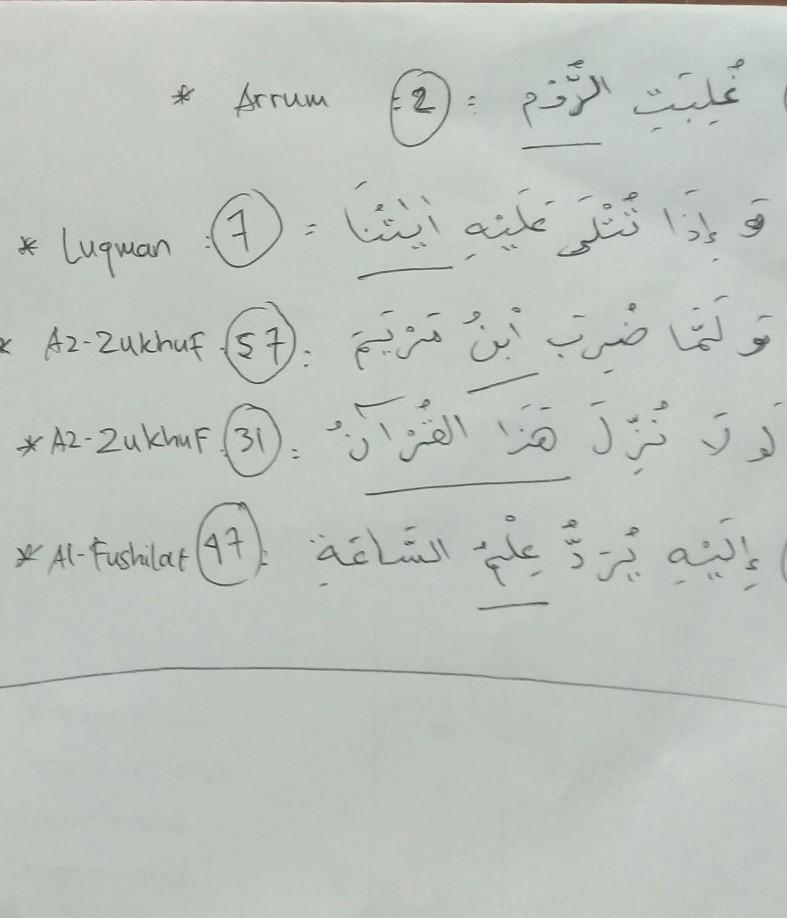 * Arrum : 2 = غُلِبَتِ الرُّوْمُ
* Luqman : 7 = وَ إِذَا تُتْلَى عَلَيْهِ اٰيٰتُنَا
* Az-Zukhuf : 57 : وَ لَمَّا ضُرِبَ ابْنُ مَرْيَمَ
* Az-Zukhuf : 31 : لَوْ لَا نُزِّلَ هَذَا القُرْآنُ
* Al-Fushilat 47 : إِلَيْهِ يُرَدُّ عِلْمُ السَّاعَةِ